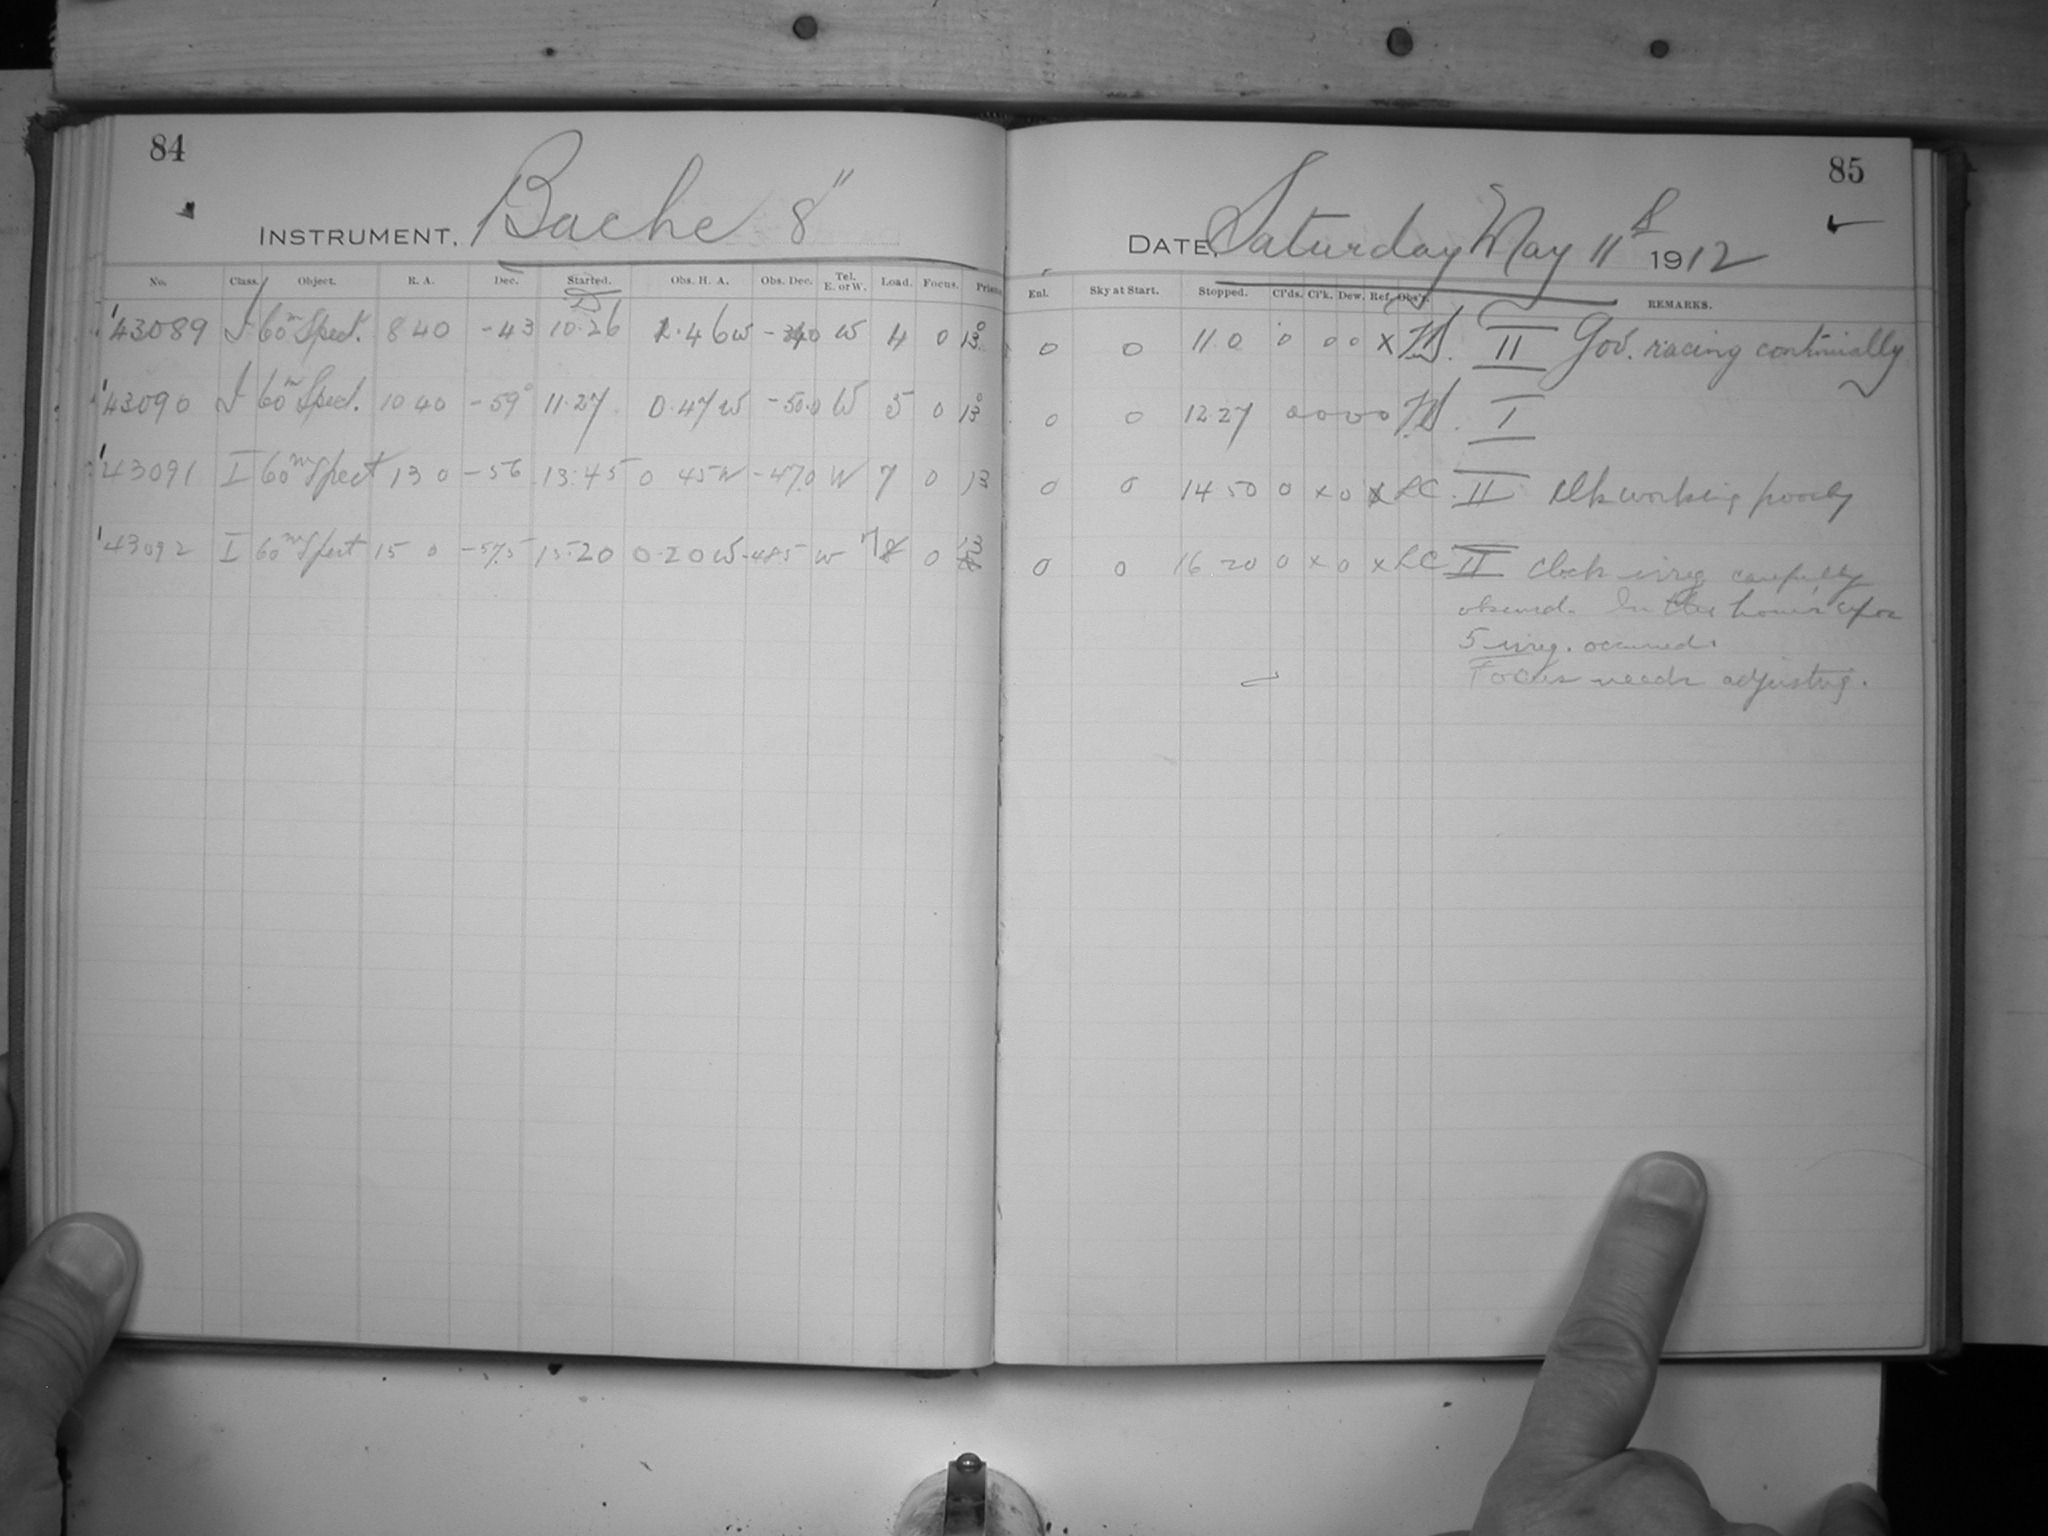 84
INSTRUMENT. Bache 8"
No. Class. Object. R. A. Dec. Started. Obs. H. A. Obs. Dec. Tel. E. or W. Load. Focus. Prism
43089 I 60m Spect. 8 40 -43 10.26 1.46W W 4 0 13°
43090 I 60m Spect. 10 40 -59° 11.27 0.47W -50.0 W 5 0 13°
43091 I 60m Spect 13 0 -56 13.45 0 45W -47.0 W 7 0 13
43092 I 60m Spect 15 0 -57.5 15.20 0.20W -48.5 W 7 0 13
85
DATE, Saturday May 11 1912
Enl. Sky at Start. Stopped. Cl'ds. Cl'k. Dew. Ref. Obs'r. REMARKS.
0 0 11.0 0 0 0 X II Gov. racing continually
0 0 12.27 0 0 0 0 I
0 0 14 50 0 x 0 x LC II Clk working poorly
0 0 16 20 0 x 0 x LC II Clock irreg carefully
observed. In the hour's expos
5 irreg. occurred.
Focus needs adjusting.